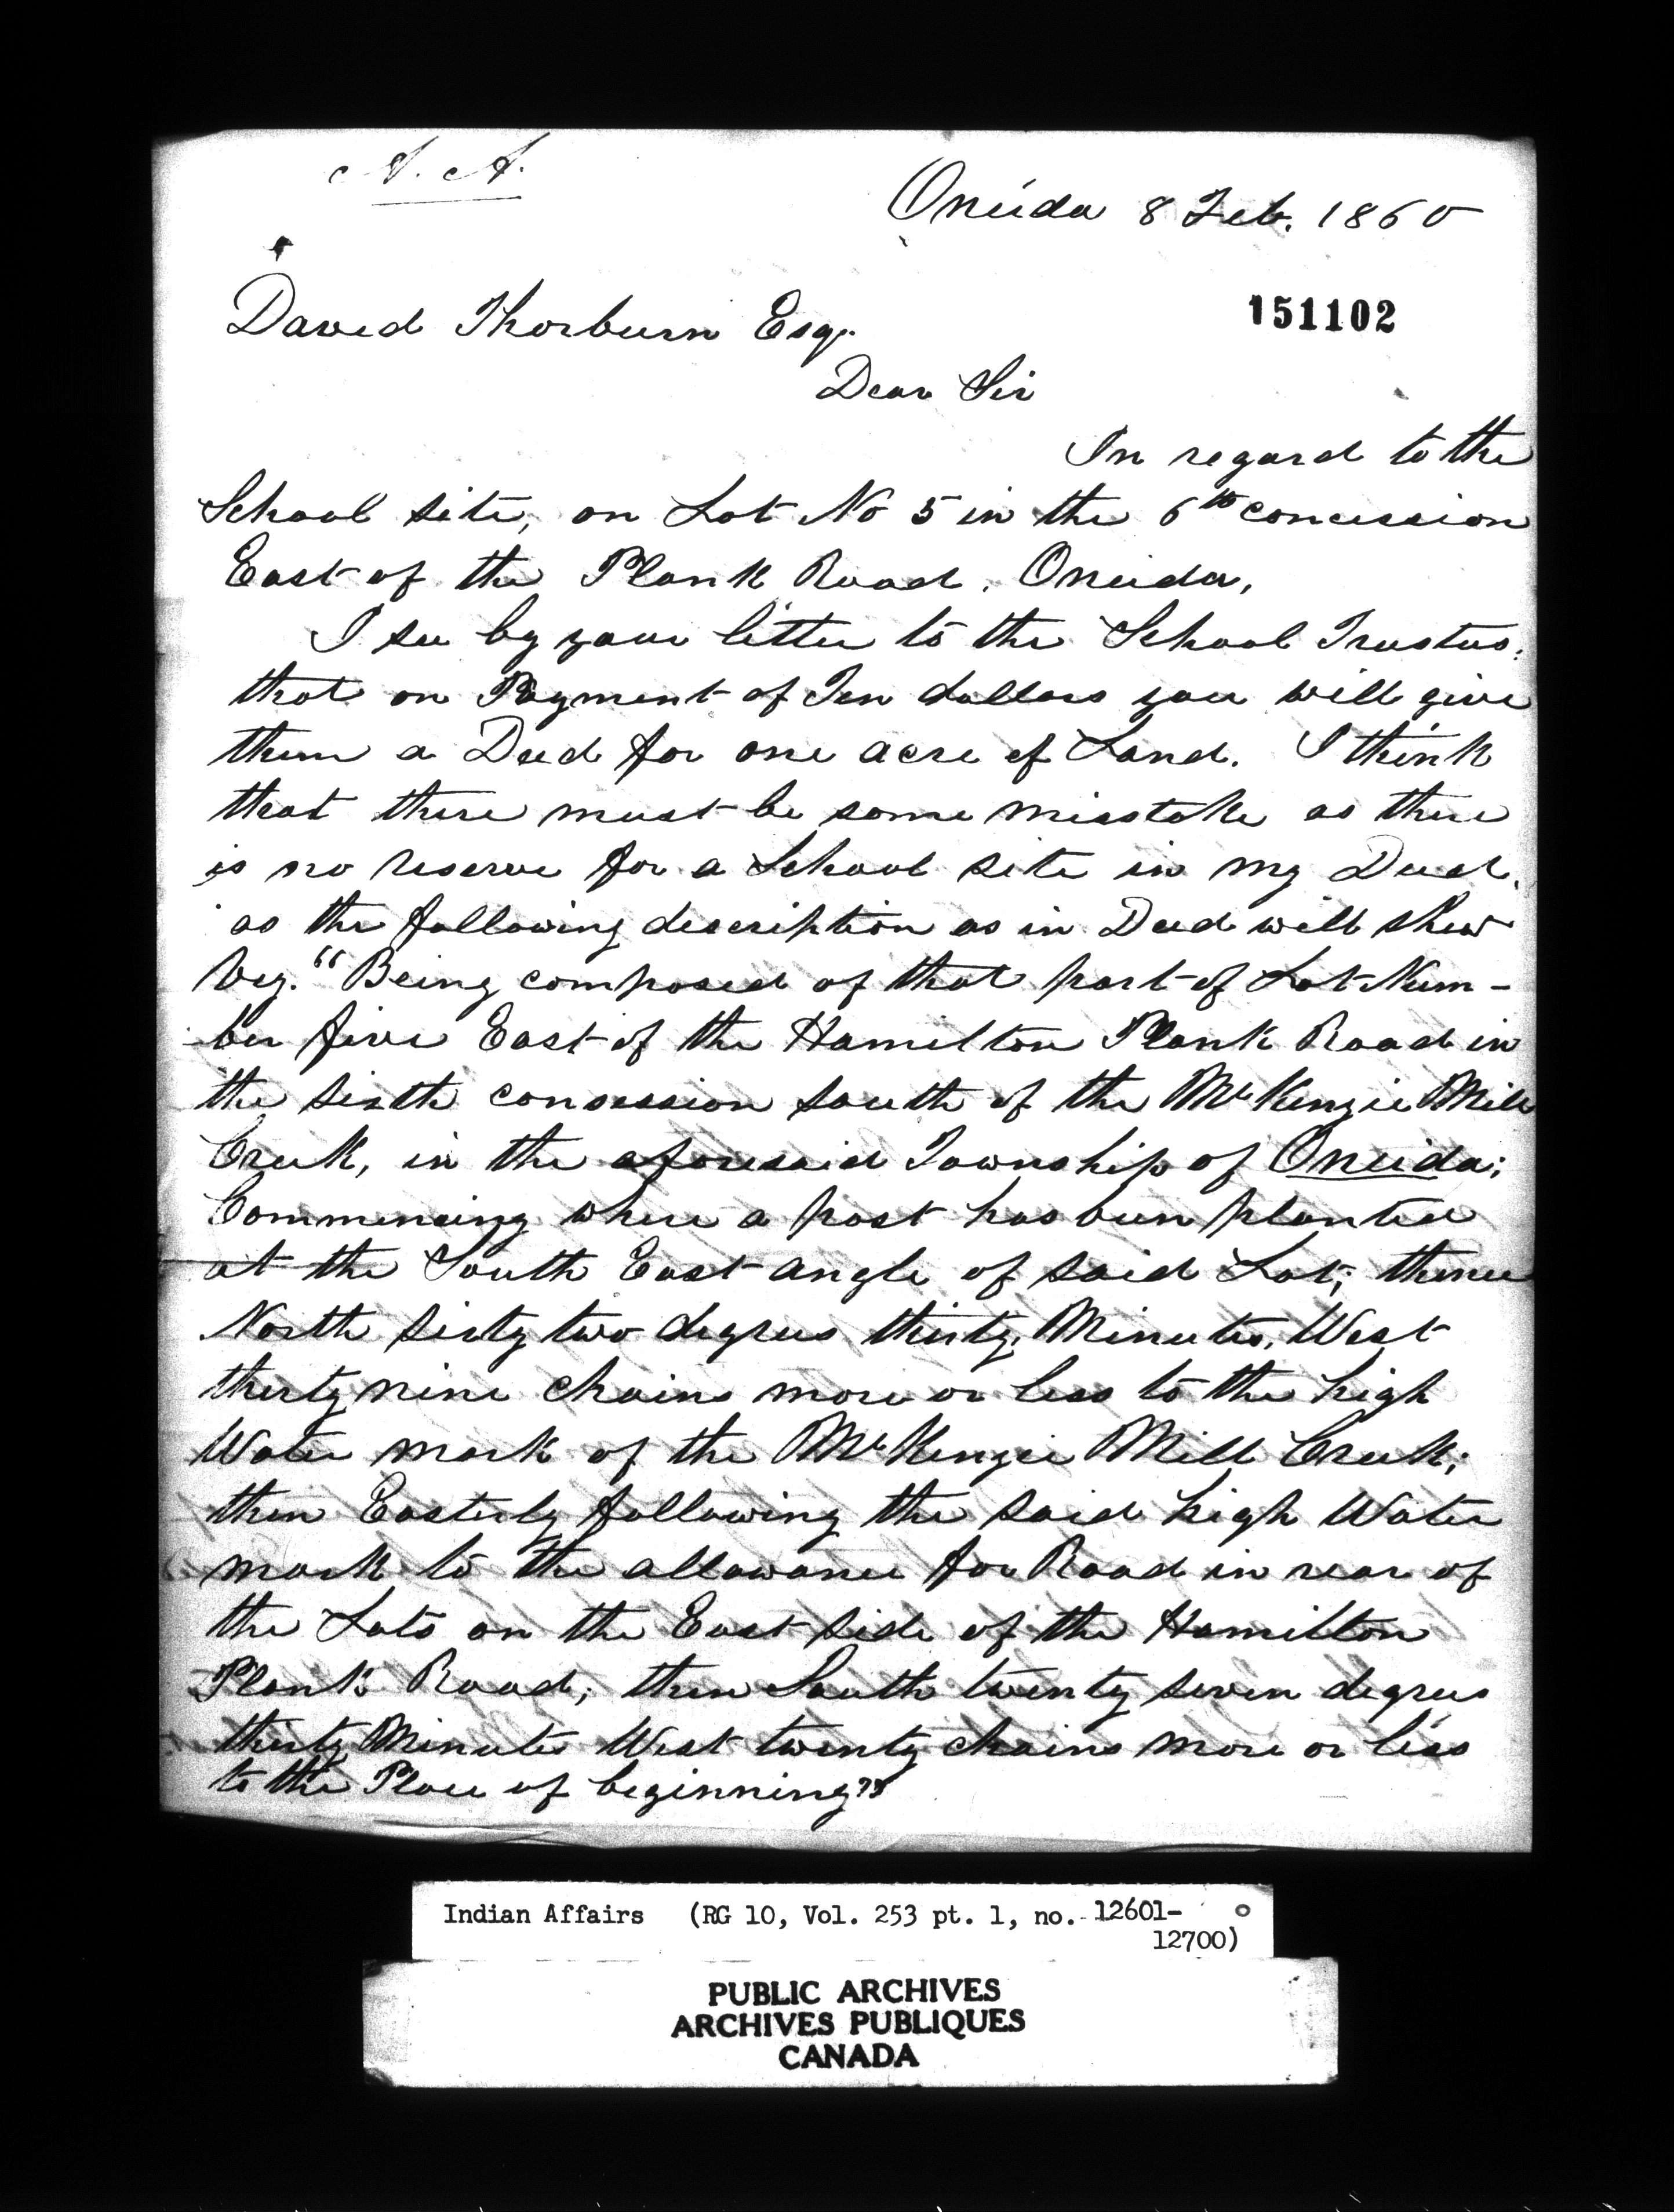 A. A.
Oneida 8 Feb. 1860
151102
David Thorburn Esqr.
Dear Sir
In regard to the
School site, on Lot No 5 in the 6th concession
East of the Plank Road. Oneida,
I see by your letter to the School Trustees.
that on Payment of Ten dollars you will give
them a Deed for one acre of Land. I think
that there must be some misstake as there
is no reserve for a School site in my Deed.
as the following description as in Deed will shew
Viz. "Being composed of that part of Lot Num-
ber five East of the Hamilton Plank Road in
the sixth consession south of the McKenzie Mill
Creek, in the aforesaid Township of Oneida;
Commencing where a post has been planted
at the South East angle of said Lot; thence
North sixty two degrees thirty Minutes, West
thirty nine chains more or less to the high
Water mark of the McKenzie Mill Creek;
then Easterly following the said high Water
mark to the allowance for Road in rear of
the Lots on the East side of the Hamilton
Plank Road; then South twenty seven degrees
thirty Minutes West twenty chains more or less
to the Place of beginning"
Indian Affairs (RG 10, Vol. 253 pt. 1, no. 12601-
12700)
PUBLIC ARCHIVES
ARCHIVES PUBLIQUES
CANADA